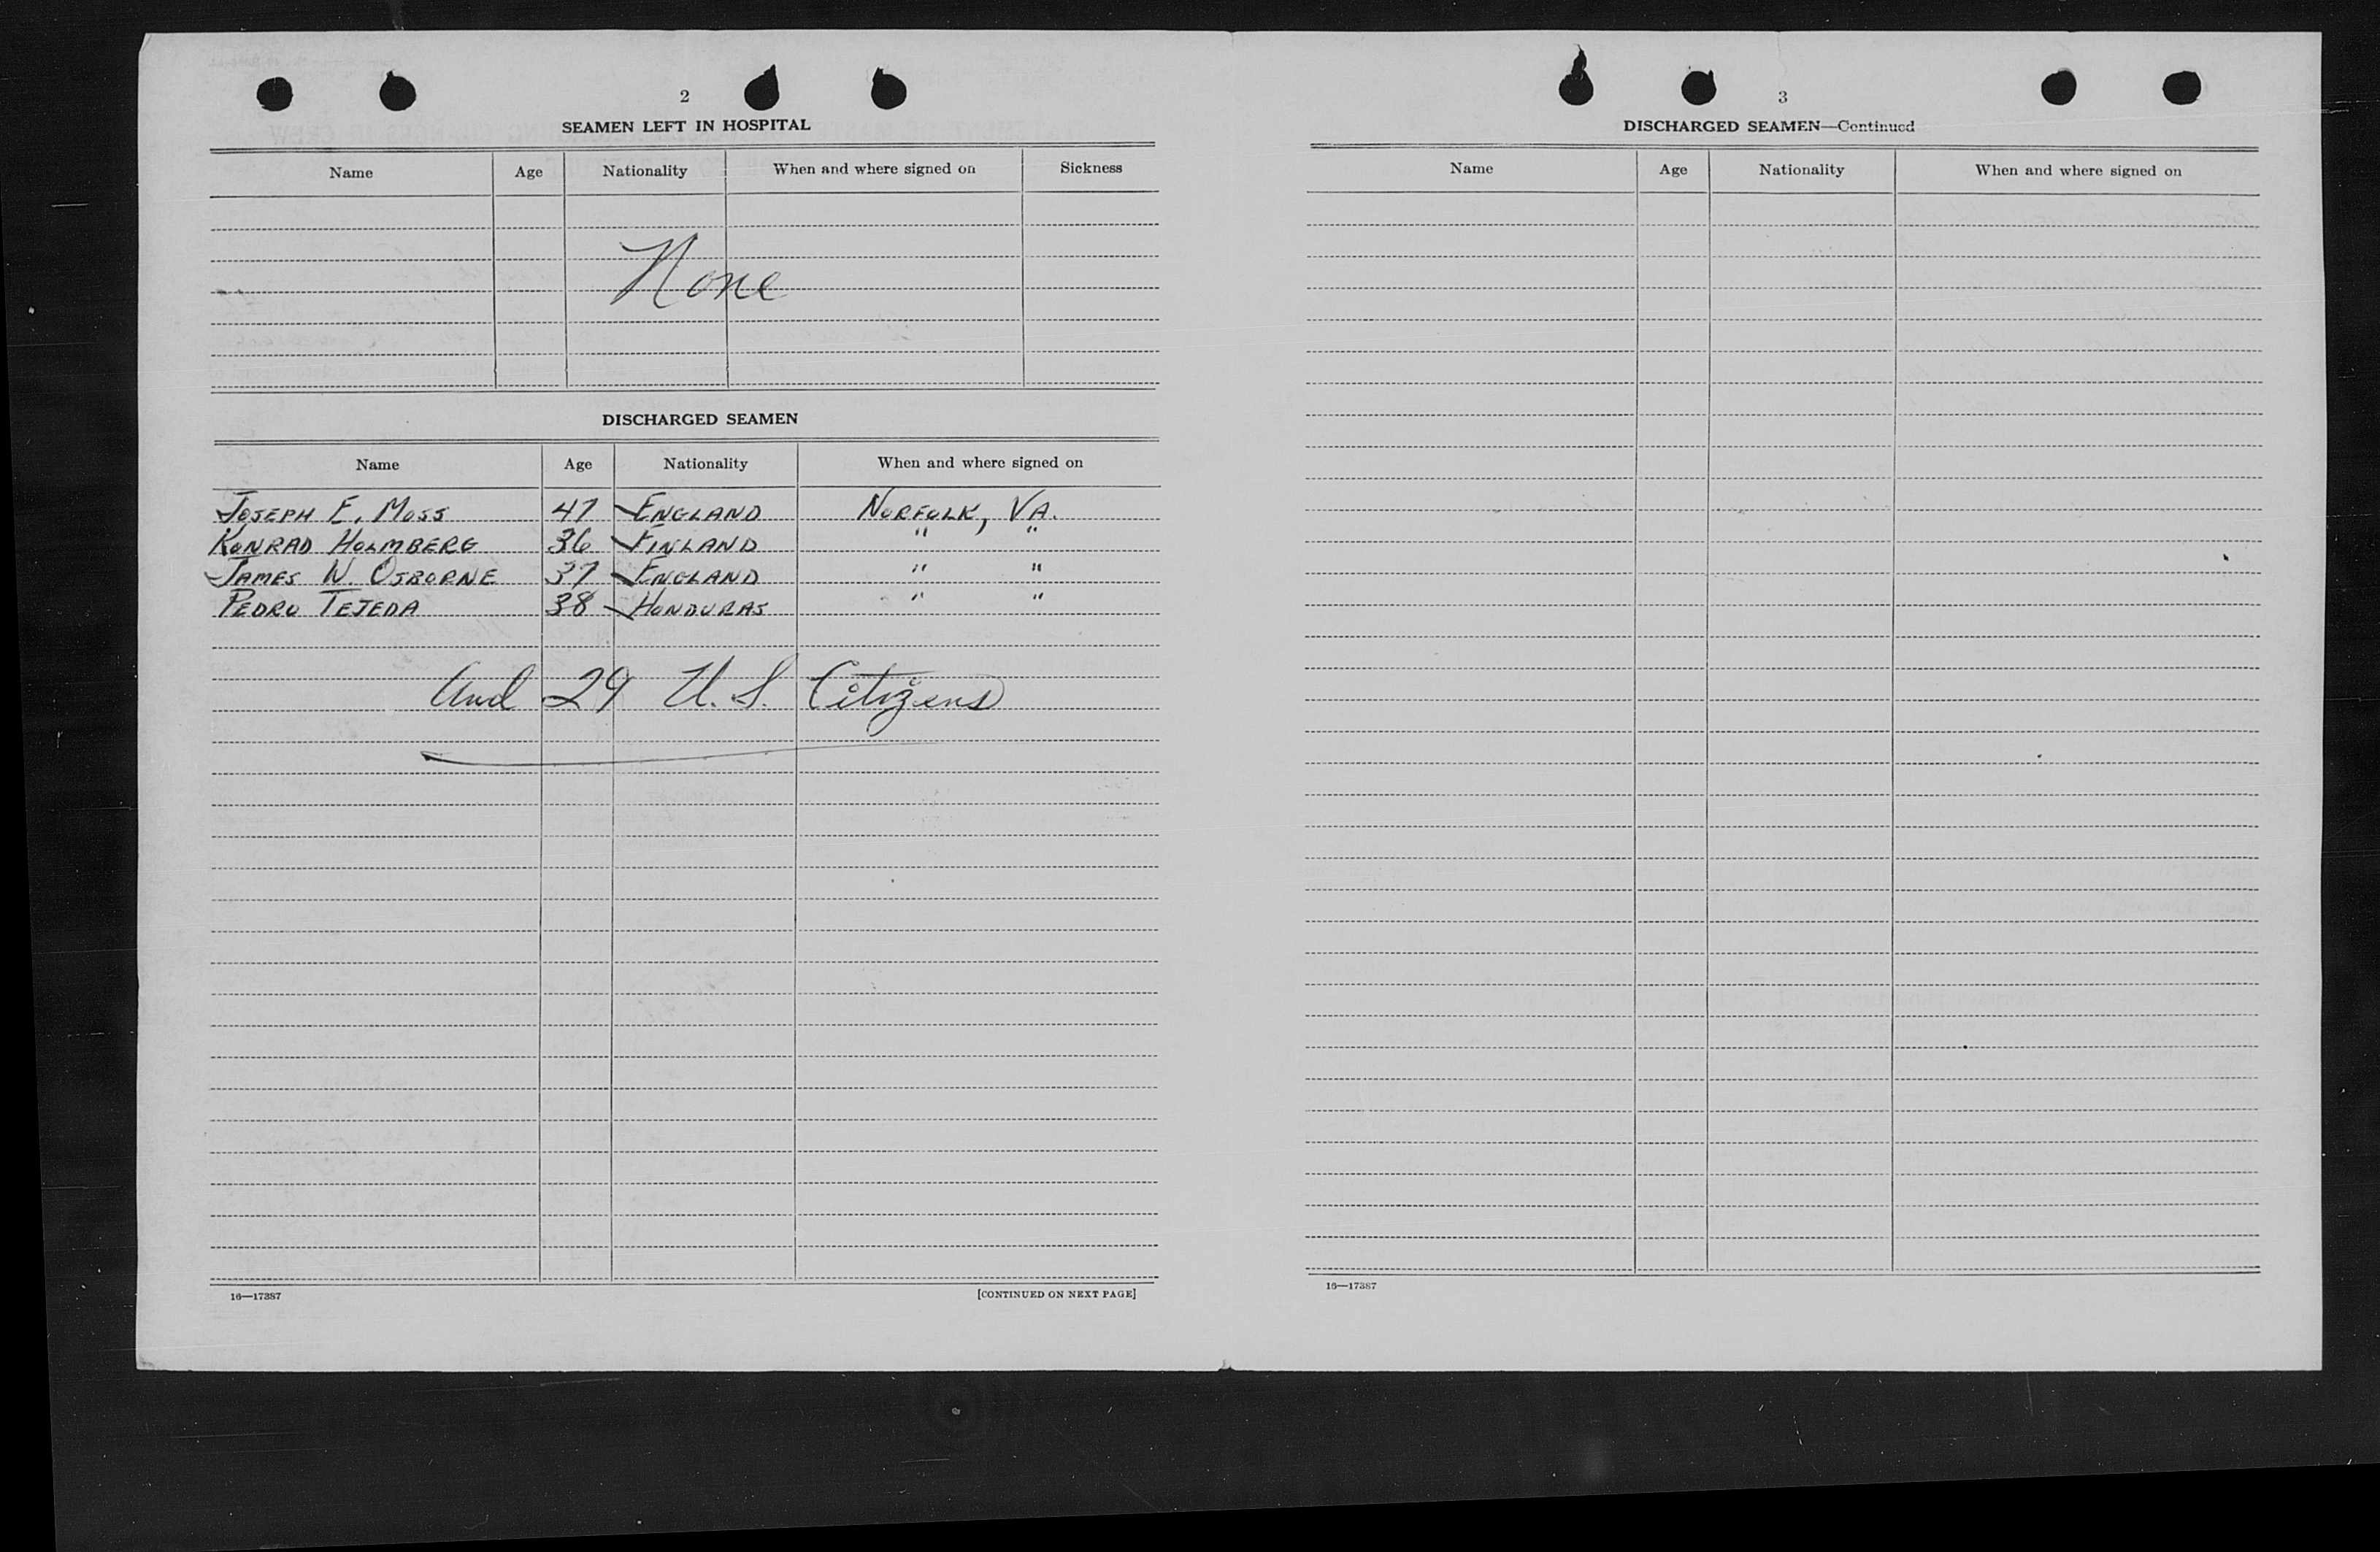 2
SEAMEN LEFT IN HOSPITAL
Name Age Nationality When and where signed on Sickness
None
DISCHARGED SEAMEN
Name Age Nationality When and where signed on
JOSEPH E. MOSS 47 ENGLAND NORFOLK, VA.
KONRAD HOLMBERG 36 FINLAND " "
JAMES W. OSBORNE 37 ENGLAND " "
PEDRO TEJEDA 38 HONDURAS " "
And 29 U. S. Citizens
16—17387 [CONTINUED ON NEXT PAGE]
3
DISCHARGED SEAMEN—Continued
Name Age Nationality When and where signed on
16—17387